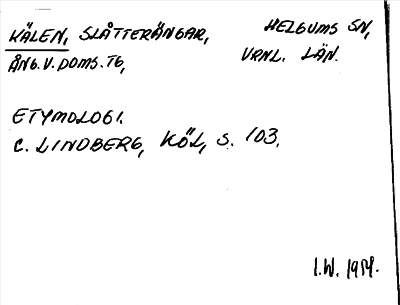 KÄLEN, SLÅTTERÄNGAR, HELGUMS SN,
ÅNG. V. DOMS. TG, VRNL. LÄN.
ETYMOLOGI.
C. LINDBERG, KÖL, S. 103.
I.W.